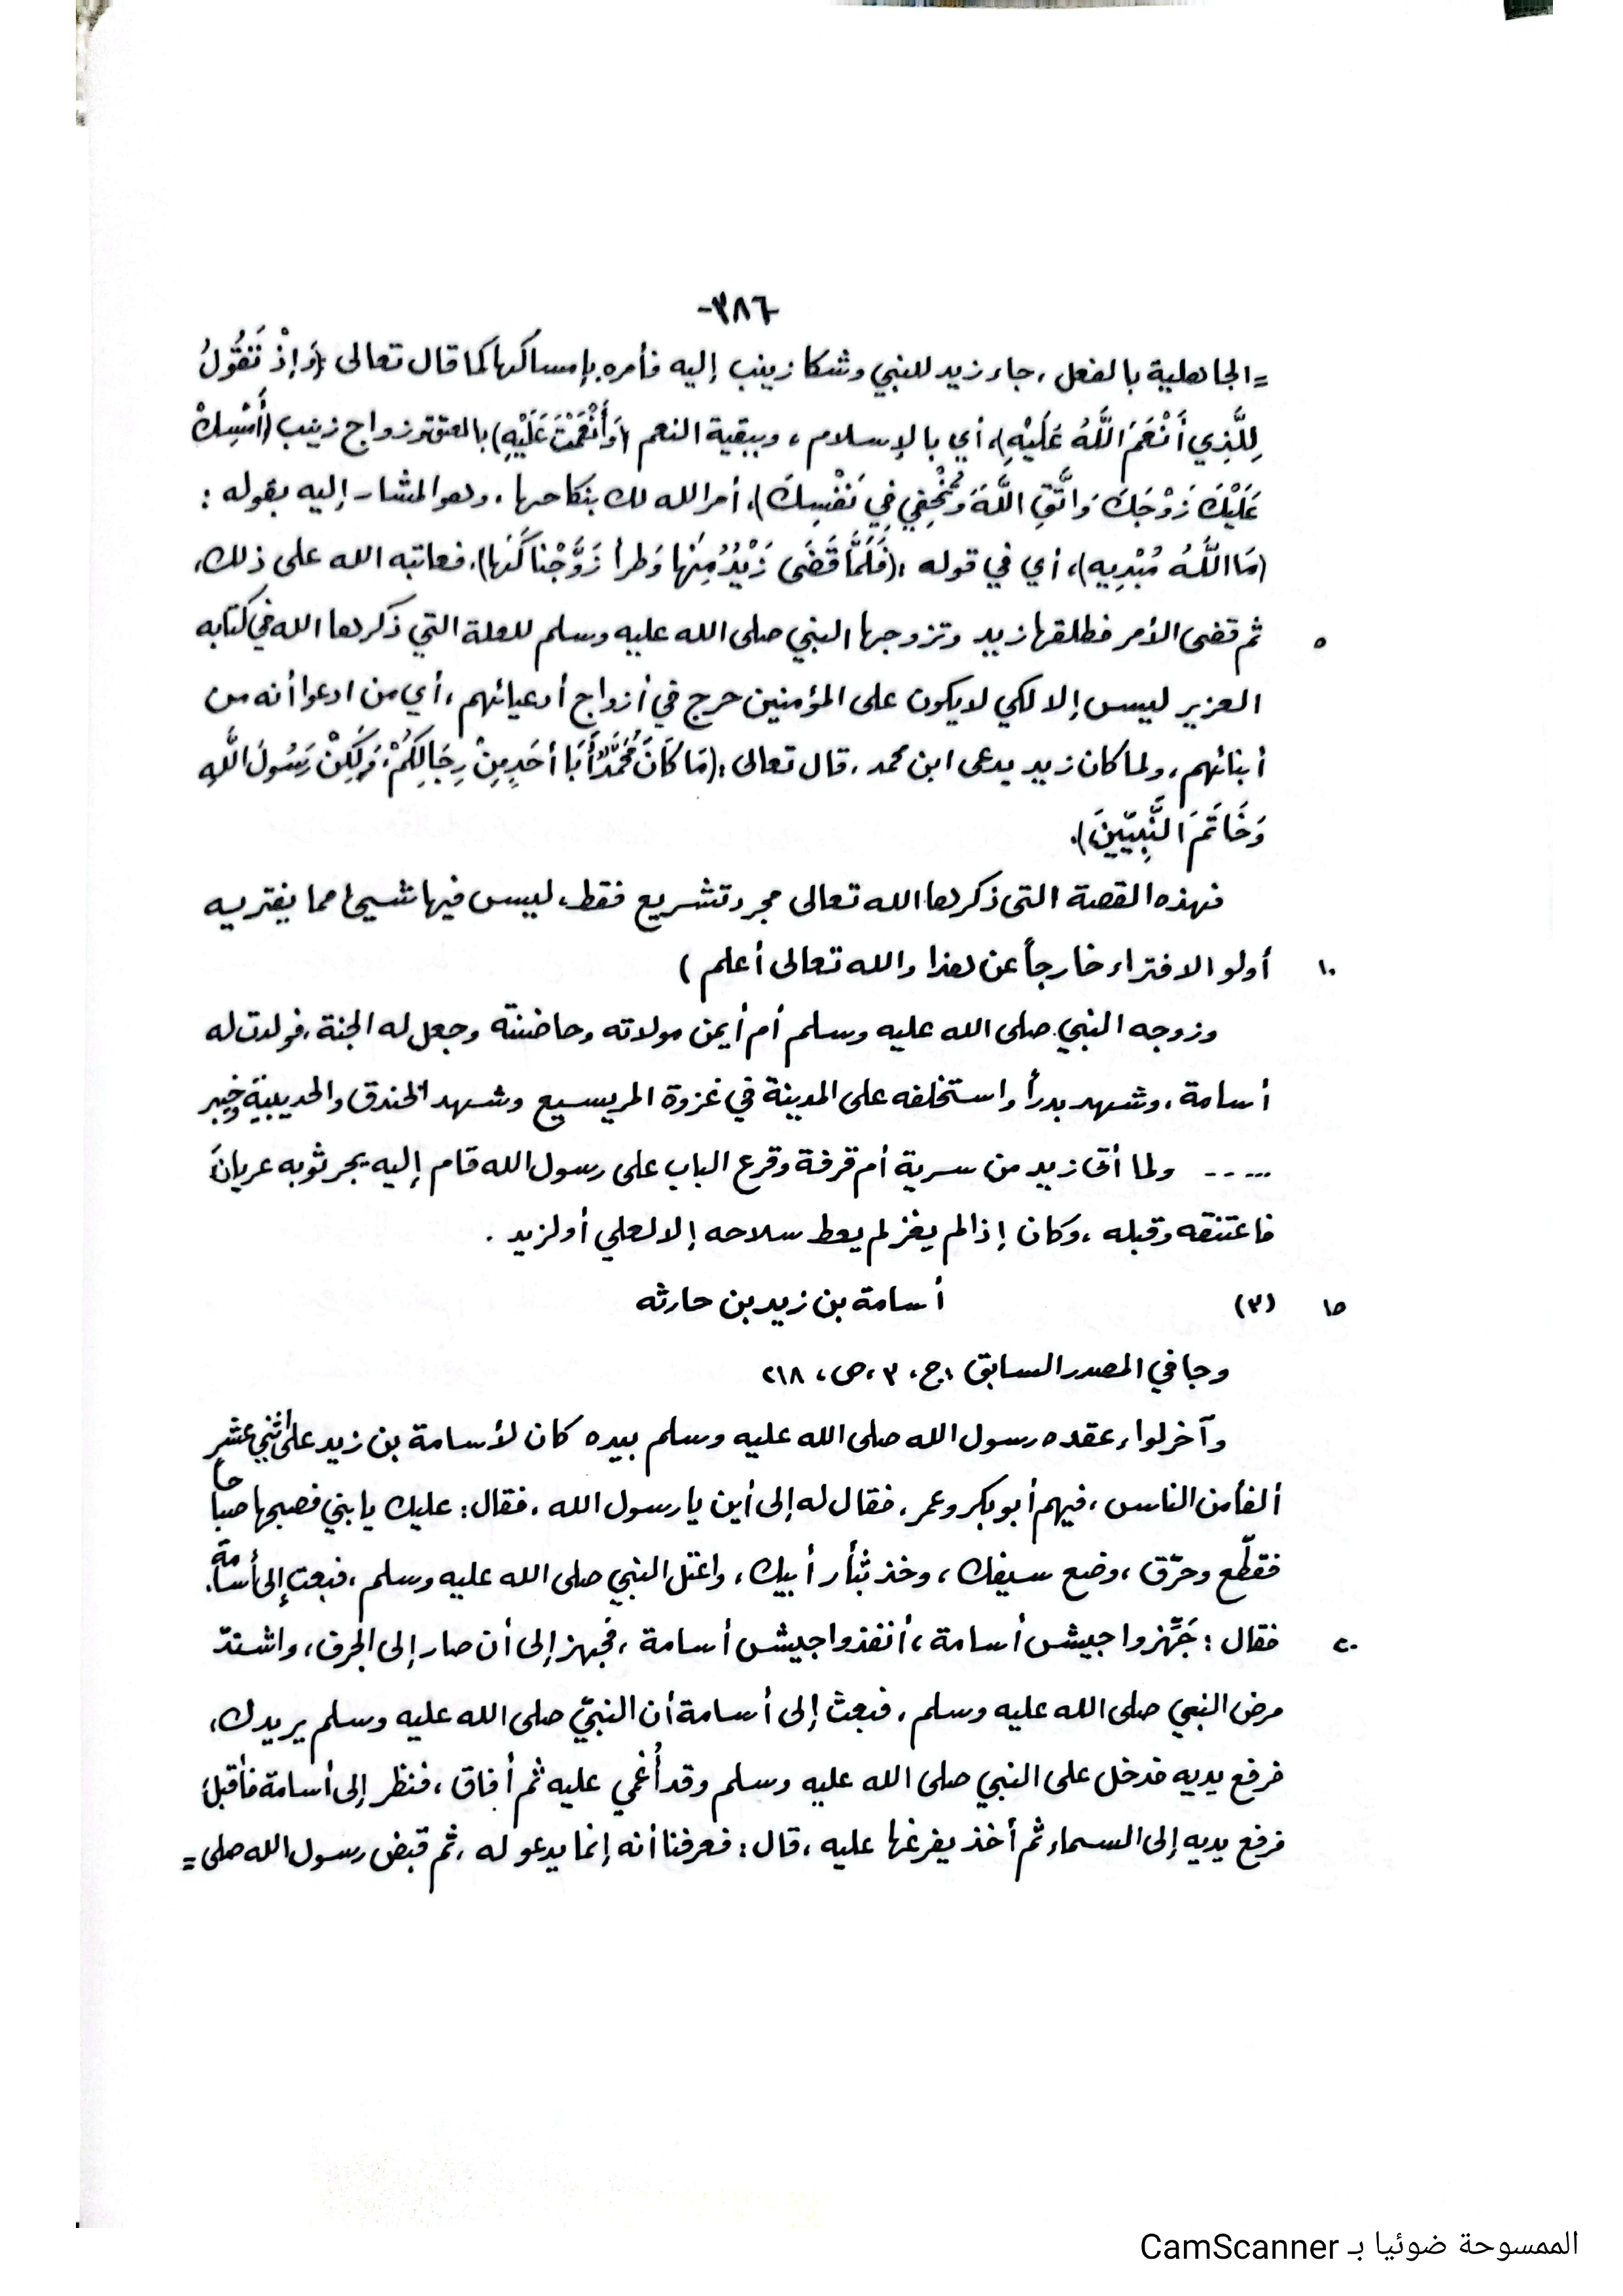 -٣٨٦-
=الجاهلية بالفعل، جاء زيد للنبي وشكا زينب إليه فأمره بإمساكها كما قال تعالى (وَإِذْ تَقُولُ
لِلَّذِي أَنْعَمَ اللَّهُ عَلَيْهِ)، أي بالإسلام، وببقية النعم (وَأَنْعَمْتَ عَلَيْهِ) بالعتق وزواج زينب (أَمْسِكْ
عَلَيْكَ زَوْجَكَ وَاتَّقِ اللَّهَ وَتُخْفِي فِي نَفْسِكَ)، أمر الله لك بنكاحها، وهو المشار إليه بقوله :
(مَا اللَّهُ مُبْدِيهِ)، أي في قوله :(فَلَمَّا قَضَى زَيْدٌ مِنْها وَطراً زَوَّجْناكَهَا)، فعاتبه الله على ذلك،
٥ ثم قضى الأمر فطلقها زيد وتزوجها النبي صلى الله عليه وسلم للعلة التي ذكرها الله في كتابه
العزيز ليس إلا لكي لا يكون على المؤمنين حرج في أزواج أدعيائهم، أي من ادعوا أنه من
أبنائهم، ولما كان زيد يدعى ابن محمد، قال تعالى :(مَا كَانَ مُحَمَّدٌ أَبَا أَحَدٍ مِنْ رِجَالِكُمْ، وَلَكِنْ رَسُولَ اللَّهِ
وَخَاتَمَ النَّبِيّينَ).
فهذه القصة التى ذكرها الله تعالى مجرد تشريع فقط، ليس فيها شيئ مما يفتريه
١٠ أولو الافتراء خارجاً عن هذا والله تعالى أعلم )
وزوجه النبي صلى الله عليه وسلم أم أيمن مولاته وحاضنته وجعل له الجنة، فولدت له
أسامة، وشهد بدراً واستخلفه على المدينة في غزوة المريسيع وشهد الخندق والحديبية وخيبر
..... ولما أتى زيد من سرية أم قرفة وقرع الباب على رسول الله قام إليه يجر ثوبه عريانَ
فاعتنقه وقبله، وكان إذا لم يغز لم يعط سلاحه إلا لعلي أو لزيد .
١٥ (٣) أسامة بن زيد بن حارثه
وجا في المصدر السابق ،ج، ٣ ،ص، ٢١٨
وآخر لواء عقده رسول الله صلى الله عليه وسلم بيده كان لأسامة بن زيد على اثني عشر
ألفاً من الناس، فيهم أبو بكر وعمر، فقال له إلى أين يا رسول الله، فقال: عليك يا بني فصبحها صباحاً
فقطّع وحرّق، وضع سيفك، وخذ بثأر أبيك، واعتل النبي صلى الله عليه وسلم، فبعث إلى أسامة،
٢٠ فقال : جَهِّزوا جيش أسامة، أنفذوا جيش أسامة، فجهز إلى أن صار إلى الجرف، واشتدّ
مرض النبي صلى الله عليه وسلم، فبعث إلى أسامة أن النبيّ صلى الله عليه وسلم يريدك،
فرفع يديه فدخل على النبي صلى الله عليه وسلم وقد أُغمي عليه ثم أفاق، فنظر إلى أسامة فأقبل
فرفع يديه إلى السماء ثم أخذ يفرغها عليه، قال: فعرفنا أنه إنما يدعو له، ثم قبض رسول الله صلى =
الممسوحة ضوئيا بـ CamScanner